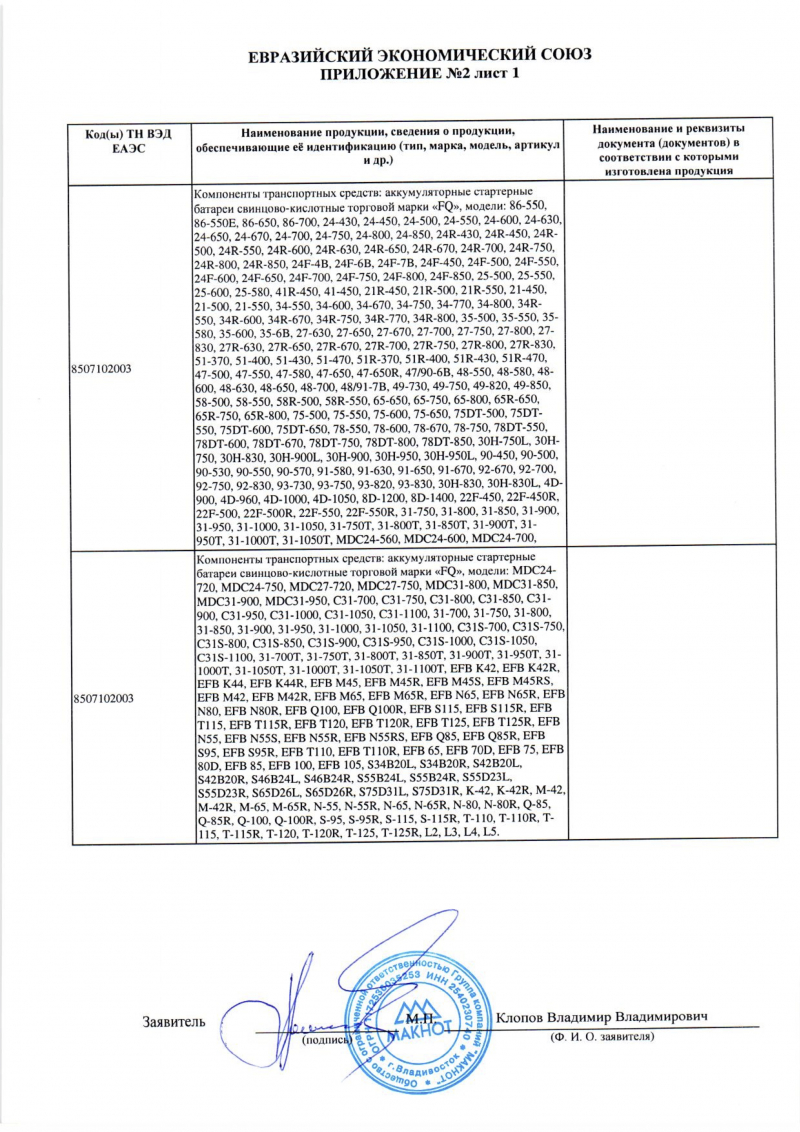 ЕВРАЗИЙСКИЙ ЭКОНОМИЧЕСКИЙ СОЮЗ
ПРИЛОЖЕНИЕ №2 лист 1
Код(ы) ТН ВЭД
ЕАЭС
Наименование продукции, сведения о продукции,
обеспечивающие её идентификацию (тип, марка, модель, артикул
и др.)
Наименование и реквизиты
документа (документов) в
соответствии с которыми
изготовлена продукция
8507102003
Компоненты транспортных средств: аккумуляторные стартерные
батареи свинцово-кислотные торговой марки «FQ», модели: 86-550,
86-550E, 86-650, 86-700, 24-430, 24-450, 24-500, 24-550, 24-600, 24-630,
24-650, 24-670, 24-700, 24-750, 24-800, 24-850, 24R-430, 24R-450, 24R-
500, 24R-550, 24R-600, 24R-630, 24R-650, 24R-670, 24R-700, 24R-750,
24R-800, 24R-850, 24F-4B, 24F-6B, 24F-7B, 24F-450, 24F-500, 24F-550,
24F-600, 24F-650, 24F-700, 24F-750, 24F-800, 24F-850, 25-500, 25-550,
25-600, 25-580, 41R-450, 41-450, 21R-450, 21R-500, 21R-550, 21-450,
21-500, 21-550, 34-550, 34-600, 34-670, 34-750, 34-770, 34-800, 34R-
550, 34R-600, 34R-670, 34R-750, 34R-770, 34R-800, 35-500, 35-550, 35-
580, 35-600, 35-6B, 27-630, 27-650, 27-670, 27-700, 27-750, 27-800, 27-
830, 27R-630, 27R-650, 27R-670, 27R-700, 27R-750, 27R-800, 27R-830,
51-370, 51-400, 51-430, 51-470, 51R-370, 51R-400, 51R-430, 51R-470,
47-500, 47-550, 47-580, 47-650, 47-650R, 47/90-6B, 48-550, 48-580, 48-
600, 48-630, 48-650, 48-700, 48/91-7B, 49-730, 49-750, 49-820, 49-850,
58-500, 58-550, 58R-500, 58R-550, 65-650, 65-750, 65-800, 65R-650,
65R-750, 65R-800, 75-500, 75-550, 75-600, 75-650, 75DT-500, 75DT-
550, 75DT-600, 75DT-650, 78-550, 78-600, 78-670, 78-750, 78DT-550,
78DT-600, 78DT-670, 78DT-750, 78DT-800, 78DT-850, 30H-750L, 30H-
750, 30H-830, 30H-900L, 30H-900, 30H-950, 30H-950L, 90-450, 90-500,
90-530, 90-550, 90-570, 91-580, 91-630, 91-650, 91-670, 92-670, 92-700,
92-750, 92-830, 93-730, 93-750, 93-820, 93-830, 30H-830, 30H-830L, 4D-
900, 4D-960, 4D-1000, 4D-1050, 8D-1200, 8D-1400, 22F-450, 22F-450R,
22F-500, 22F-500R, 22F-550, 22F-550R, 31-750, 31-800, 31-850, 31-900,
31-950, 31-1000, 31-1050, 31-750T, 31-800T, 31-850T, 31-900T, 31-
950T, 31-1000T, 31-1050T, MDC24-560, MDC24-600, MDC24-700,
8507102003
Компоненты транспортных средств: аккумуляторные стартерные
батареи свинцово-кислотные торговой марки «FQ», модели: MDC24-
720, MDC24-750, MDC27-720, MDC27-750, MDC31-800, MDC31-850,
MDC31-900, MDC31-950, C31-700, C31-750, C31-800, C31-850, C31-
900, C31-950, C31-1000, C31-1050, C31-1100, 31-700, 31-750, 31-800,
31-850, 31-900, 31-950, 31-1000, 31-1050, 31-1100, C31S-700, C31S-750,
C31S-800, C31S-850, C31S-900, C31S-950, C31S-1000, C31S-1050,
C31S-1100, 31-700T, 31-750T, 31-800T, 31-850T, 31-900T, 31-950T, 31-
1000T, 31-1050T, 31-1000T, 31-1050T, 31-1100T, EFB K42, EFB K42R,
EFB K44, EFB K44R, EFB M45, EFB M45R, EFB M45S, EFB M45RS,
EFB M42, EFB M42R, EFB M65, EFB M65R, EFB N65, EFB N65R, EFB
N80, EFB N80R, EFB Q100, EFB Q100R, EFB S115, EFB S115R, EFB
T115, EFB T115R, EFB T120, EFB T120R, EFB T125, EFB T125R, EFB
N55, EFB N55S, EFB N55R, EFB N55RS, EFB Q85, EFB Q85R, EFB
S95, EFB S95R, EFB T110, EFB T110R, EFB 65, EFB 70D, EFB 75, EFB
80D, EFB 85, EFB 100, EFB 105, S34B20L, S34B20R, S42B20L,
S42B20R, S46B24L, S46B24R, S55B24L, S55B24R, S55D23L,
S55D23R, S65D26L, S65D26R, S75D31L, S75D31R, K-42, K-42R, M-42,
M-42R, M-65, M-65R, N-55, N-55R, N-65, N-65R, N-80, N-80R, Q-85,
Q-85R, Q-100, Q-100R, S-95, S-95R, S-115, S-115R, T-110, T-110R, T-
115, T-115R, T-120, T-120R, T-125, T-125R, L2, L3, L4, L5.
Заявитель
(подпись)
М.П.
Клопов Владимир Владимирович
(Ф. И. О. заявителя)
Общество с ограниченной ответственностью Группа компаний "МАКНОТ"
ИНН 2540230740
МАКНОТ
г.Владивосток